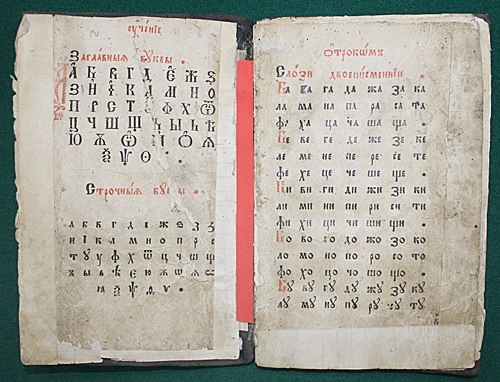 ᲂу҆че́нїе
Заглавныѧ бꙋквы
А Б В Г Д Є Ж Ѕ
З И І К Л М Н О
П Р С Т Ф Х Ѿ
Ц Ч Ш Щ Ъ Ы Ь Ѣ
Ю Ѧ
Ѯ Ѱ Ѳ
Строчныѧ
а б в г д е ж ѕ з
и і к л м н о п р с
т у ꙋ ф х ѿ ц ч ш щ
ъ ы ь ѣ є ю ѡ ѧ
ѯ ѱ ѳ ѵ
ѻ҆трокѡмъ
Слози двоеписменнїи
Ба ва га да жа за ка
ла ма на па ра са та
фа ха ца ча ша ща
Бе ве ге де же зе ке
ле ме не пе ре се те
фе хе це че ше ще
Би ви ги ди жи зи ки
ли ми ни пи ри си ти
фи хи ци чи ши щи
Бо во го до жо зо ко
ло мо но по ро со то
фо хо цо чо шо що
Бꙋ вꙋ гꙋ дꙋ жꙋ зꙋ кꙋ
лꙋ мꙋ нꙋ пꙋ рꙋ сꙋ тꙋ